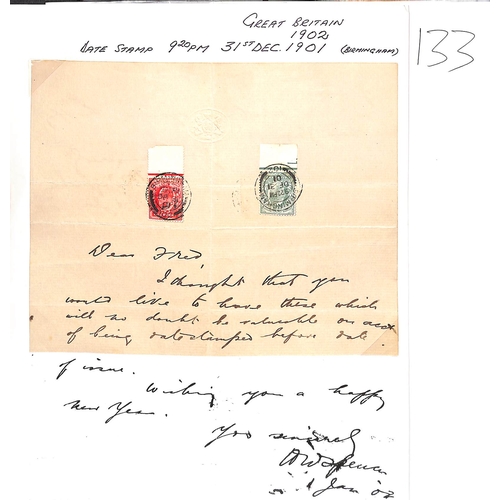 GREAT BRITAIN
1902
DATE STAMP 9 20 PM 31ST DEC. 1901 (BIRMINGHAM)
133
Dear Fred,
I thought that you
would like to have these which
will no doubt be valuable on acct
of being datestamped before date
of issue.
Wishing you a happy
new Year.
Yrs sincerely
Jan 02